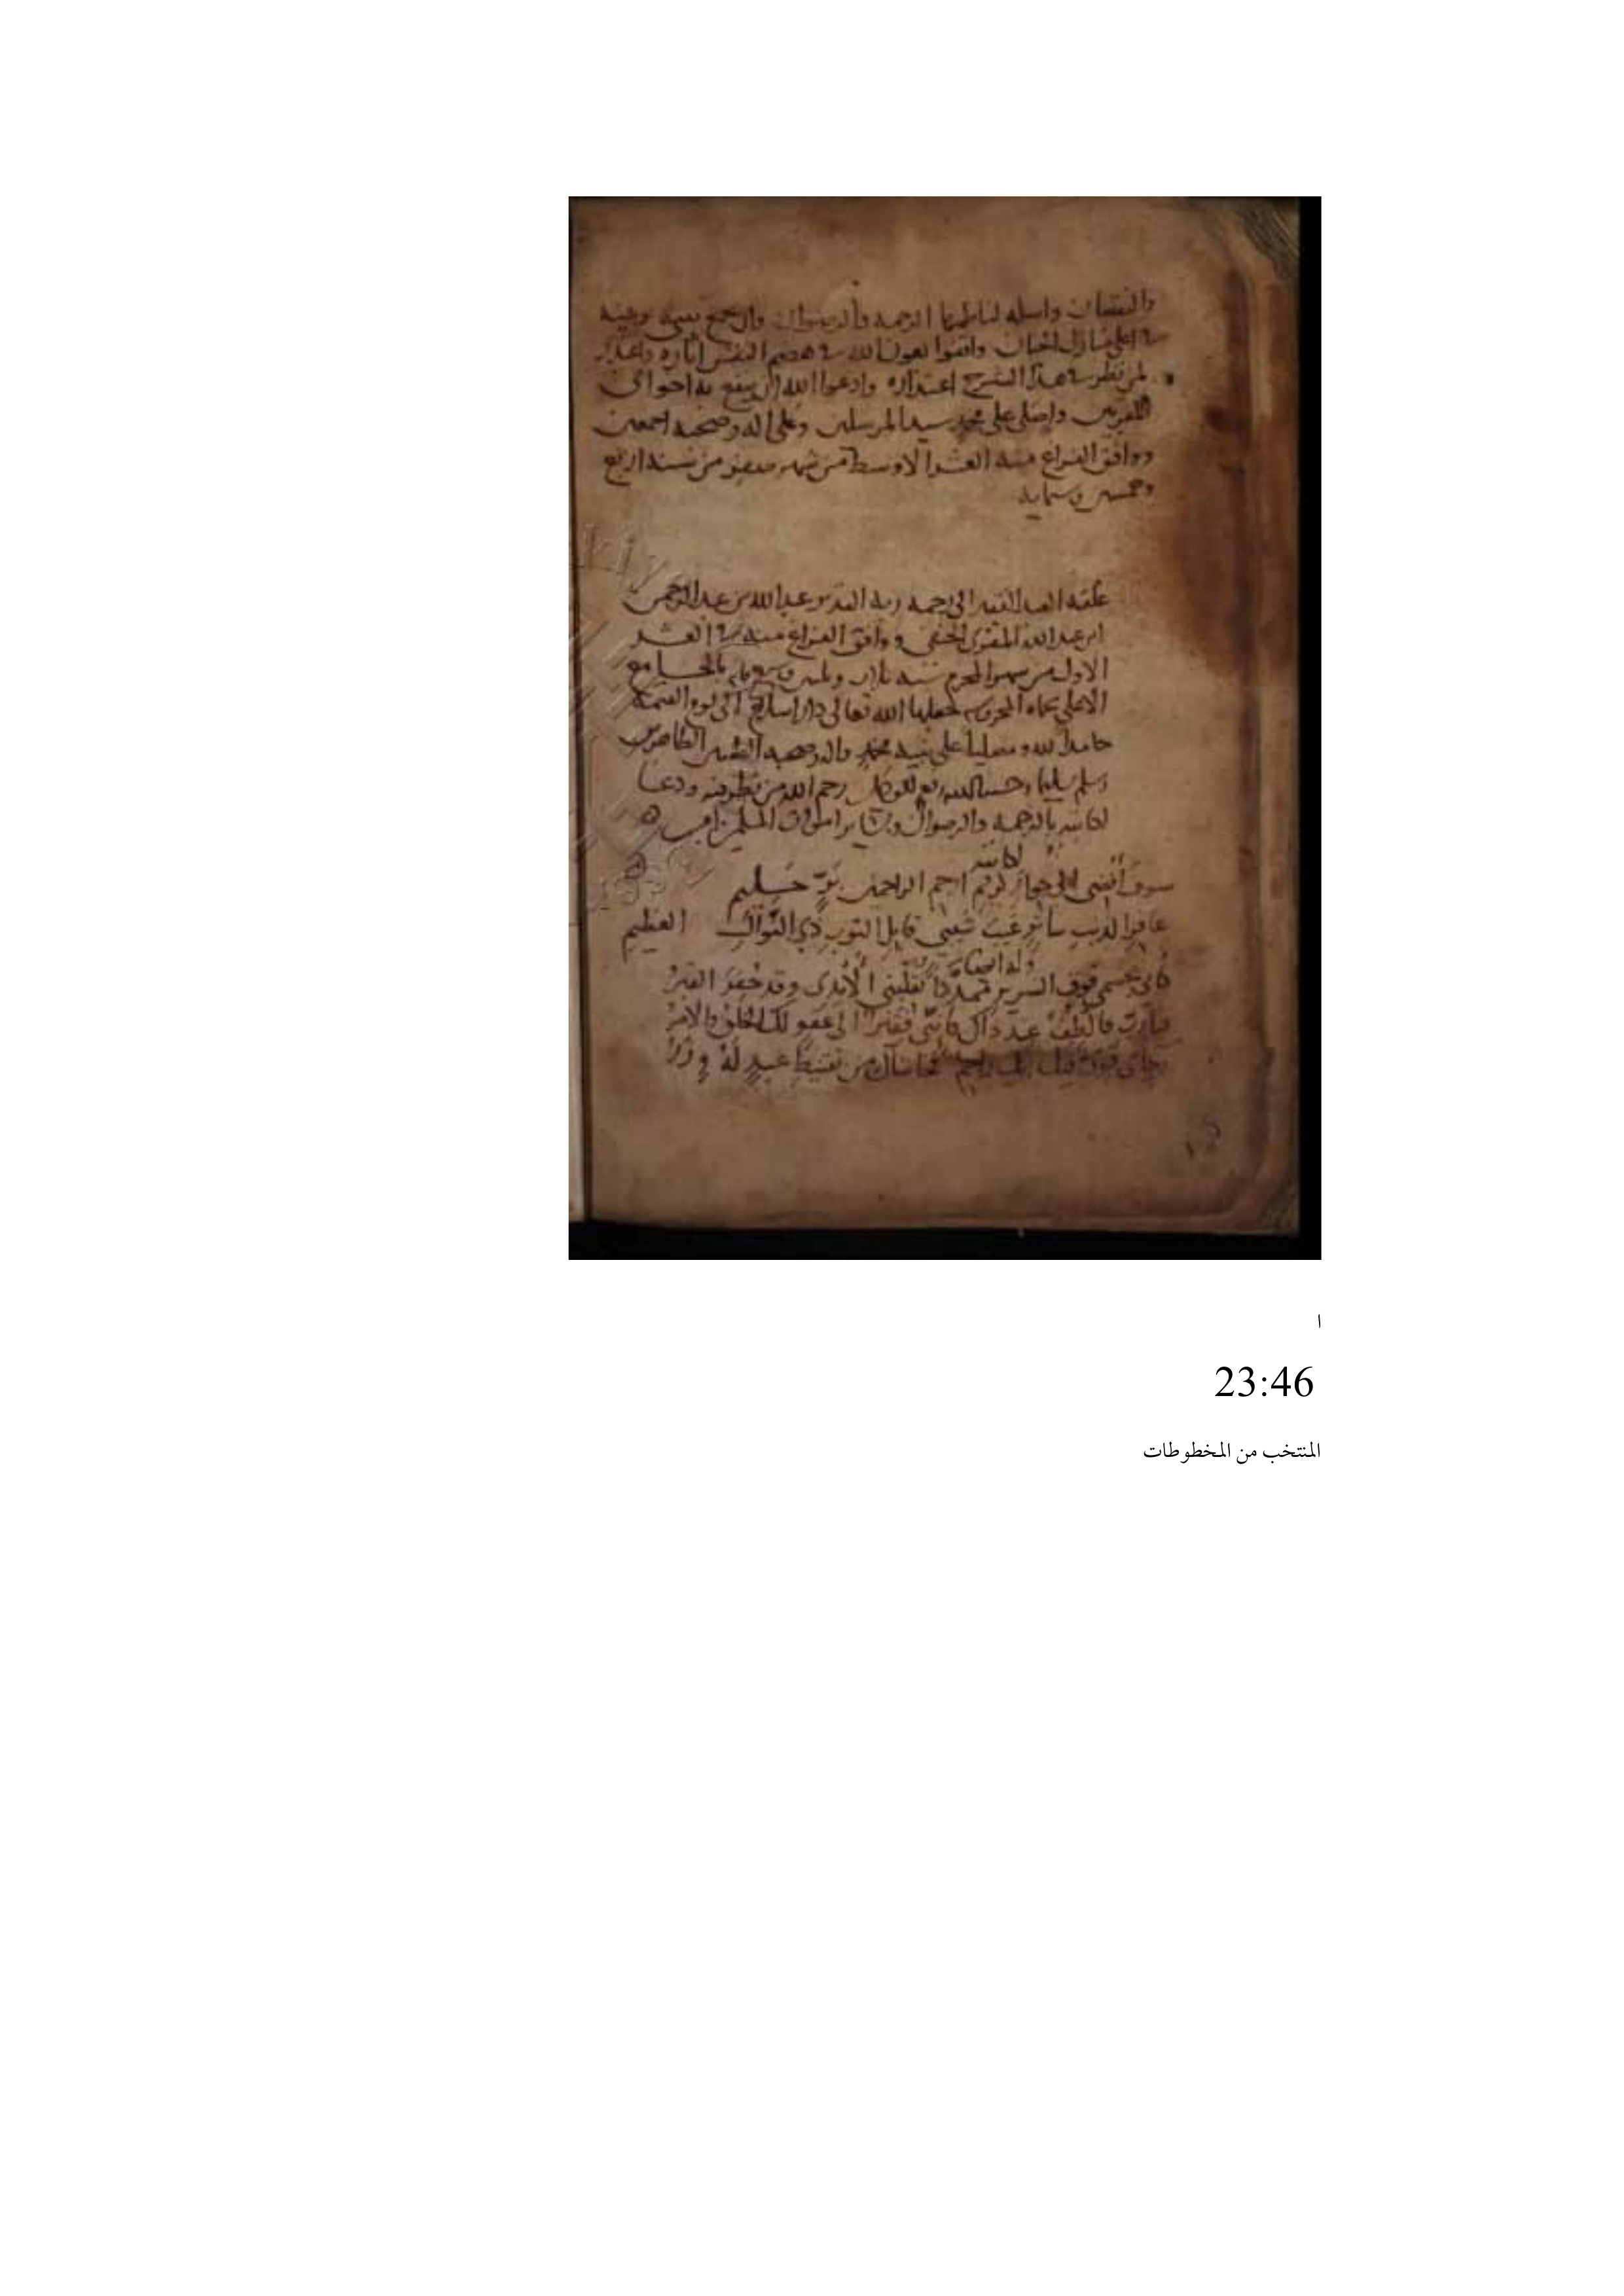 والنقصان واسله لناظمها الرحمة والرضوان وان يجمع بيني وبينه
في اعلى منازل الجنان واقفوا بعون الله في هضم النفس اثاره واعتذر
لمن نظر في هذا الشرح اعتذاره وادعوا الله ان ينفع به اخواني
المقرين واصلي على محمد سيد المرسلين وعلى اله وصحبه اجمعين
ووافق الفراغ منه العشر الاوسط من شهر صفر من سنه اربع
وخمسين وستمايه
علقه العبد الفقير الى رحمة ربه القدير عبد الله بن عبد الرحمن
ابن عبد الله المقرى الحنفي ووافق الفراغ منه في العشر
الاول من شهر المحرم سنه ثلاث وثلثين وسبع مايه بالجامع
الاعلي بحماه المحروسه جعلها الله تعالى دار اسلام الى يوم القيمة
حامدا لله ومصليا على نبيه محمد واله وصحبه الطيبين الطاهرين
وسلم تسليما وحسبنا الله ونعم الوكيل رحم الله من نظر فيه ودعا
لكاتبه بالرحمة والرضوان وساير اموات المسلمين امين
لكاتبه
سوف أفضى الى جوار كريم ارحم الراحمين بر حليم
غافر الذنب ساتر عيب شيبي قابل التوب ذي النوال العظيم
وله ايضا
كأني بجسمي فوق السرير ممددا تقلبني الأيدى وقد حفر القبر
فيا رب فالطف عند ذاك فانني فقير الى عفو لك الخلق والامر
رجاى قوى فيك انك راحم فحاشاك من تقنيط عبد له وزر
ا
23:46
المنتخب من المخطوطات